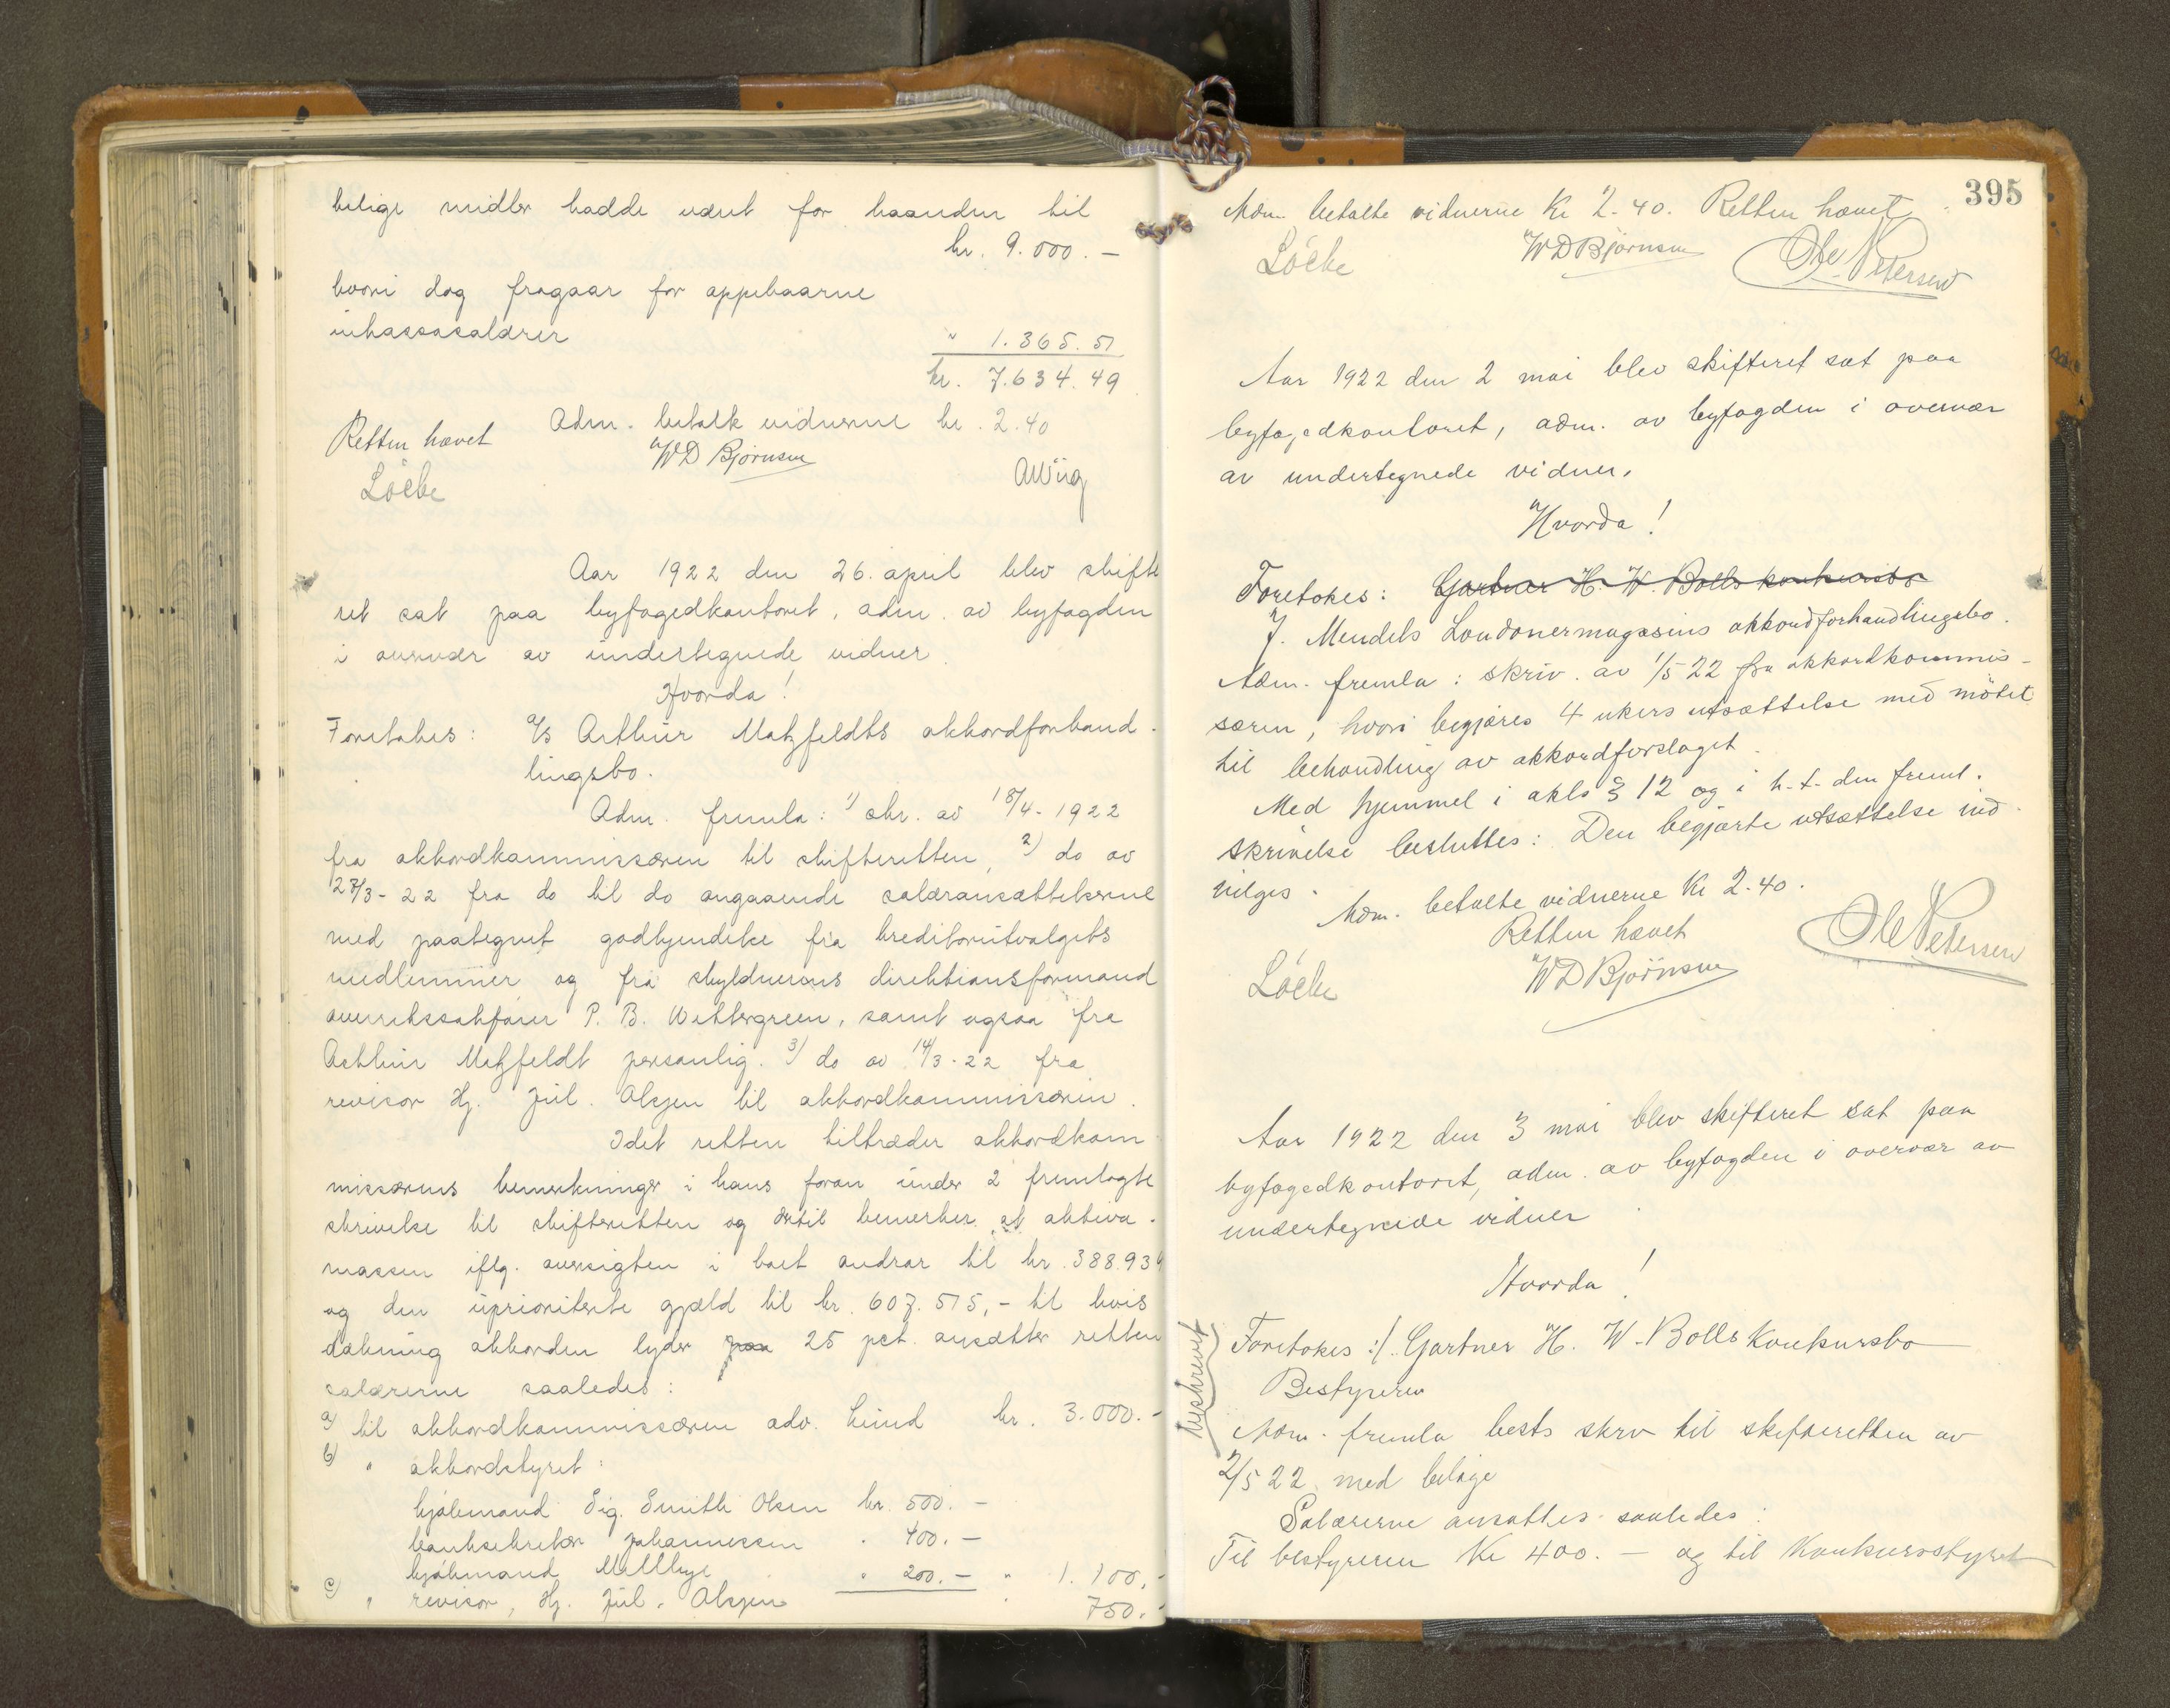 belige midler hadde været for haanden til
kr. 9.000.–
hvori dog fragaar for oppebaarne
inkassosalærer
" 1.365.51
kr. 7.634.49
Adm. betalte vidnerne kr. 2.40
Retten hævet
Löcke
WD Bjørnsen
AWiig
Aar 1922 den 26. april blev skifte
ret sat paa byfogedkontoret, adm. av byfogden
i overvær av undertegnede vidner.
Hvorda!
Foretokes: A/S Arthur Matzfeldts akkordforhand-
lingsbo.
Adm. fremla: 1) skr. av 18/4-1922
fra akkordkommissæren til skifteretten, 2) do av
27/3-22 fra do til do angaaende salæransættelserne
med paategnet godkjendelse fra kreditorutvalgets
medlemmer og fra skyldnerens direktionsformand
overretssakfører P. B. Wettergreen, samt ogsaa fra
Arthur Matzfeldt personlig. 3) do av 14/3-22 fra
revisor Hj. Jul. Olsen til akkordkommissæren.
Idet retten tiltræder akkordkom
missærens bemerkninger i hans foran under 2 fremlagte
skrivelse til skifteretten og dertil bemerker at aktiva-
massen iflg. oversigten i boet andrar til kr. 388.934
og den uprioriterte gjæld til kr. 607.515,- til hvis
dækning akkorden lyder paa 25 pct. ansætter retten
salærerne saaledes:
a) til akkordkommissæren adv. Lund kr. 3.000.-
b) " akkordstyret:
kjøbmand Sig. Smith Olsen kr. 500.–
banksekretær Johannessen " 400.–
kjøbmand Mellbye " 200.– " 1.100,-
c) " revisor, Hj. Jul. Olsen " 750.-
395
Adm. betalte vidnerne Kr 2.40. Retten hævet.
Löcke
WD Bjørnsen
Ole Petersen
Aar 1922 den 2 mai blev skifteret sat paa
byfogedkontoret, adm. av byfogden i overvær
av undertegnede vidner.
Hvorda!
Foretokes: Gartner H. W. Bolls konkursbo
J. Mendels Londonermagasins akkordforhandlingsbo.
Adm. fremla: skriv. av 1/5 22 fra akkordkommis-
særen, hvori begjæres 4 ukers utsættelse med møtet
til behandling av akkordforslaget.
Med hjemmel i akls § 12 og i h.t. den freml.
skrivelse besluttes: Den begjærte utsættelse ind-
vilges.
Adm. betalte vidnerne Kr 2.40.
Retten hævet
Löcke
WD Bjørnsen
Ole Petersen
Aar 1922 den 3 mai blev skifteret sat paa
byfogedkontoret, adm. av byfogden i overvær av
undertegnede vidner
Hvorda!
beskrevet
Foretokes :/. Gartner H. W. Bolls Konkursbo
Bestyreren
Adm. fremla bests skrv til skifteretten av
2/5 22 med bilage
Salærerne ansattes saaledes:
Til bestyreren Kr 400.– og til Konkursstyret